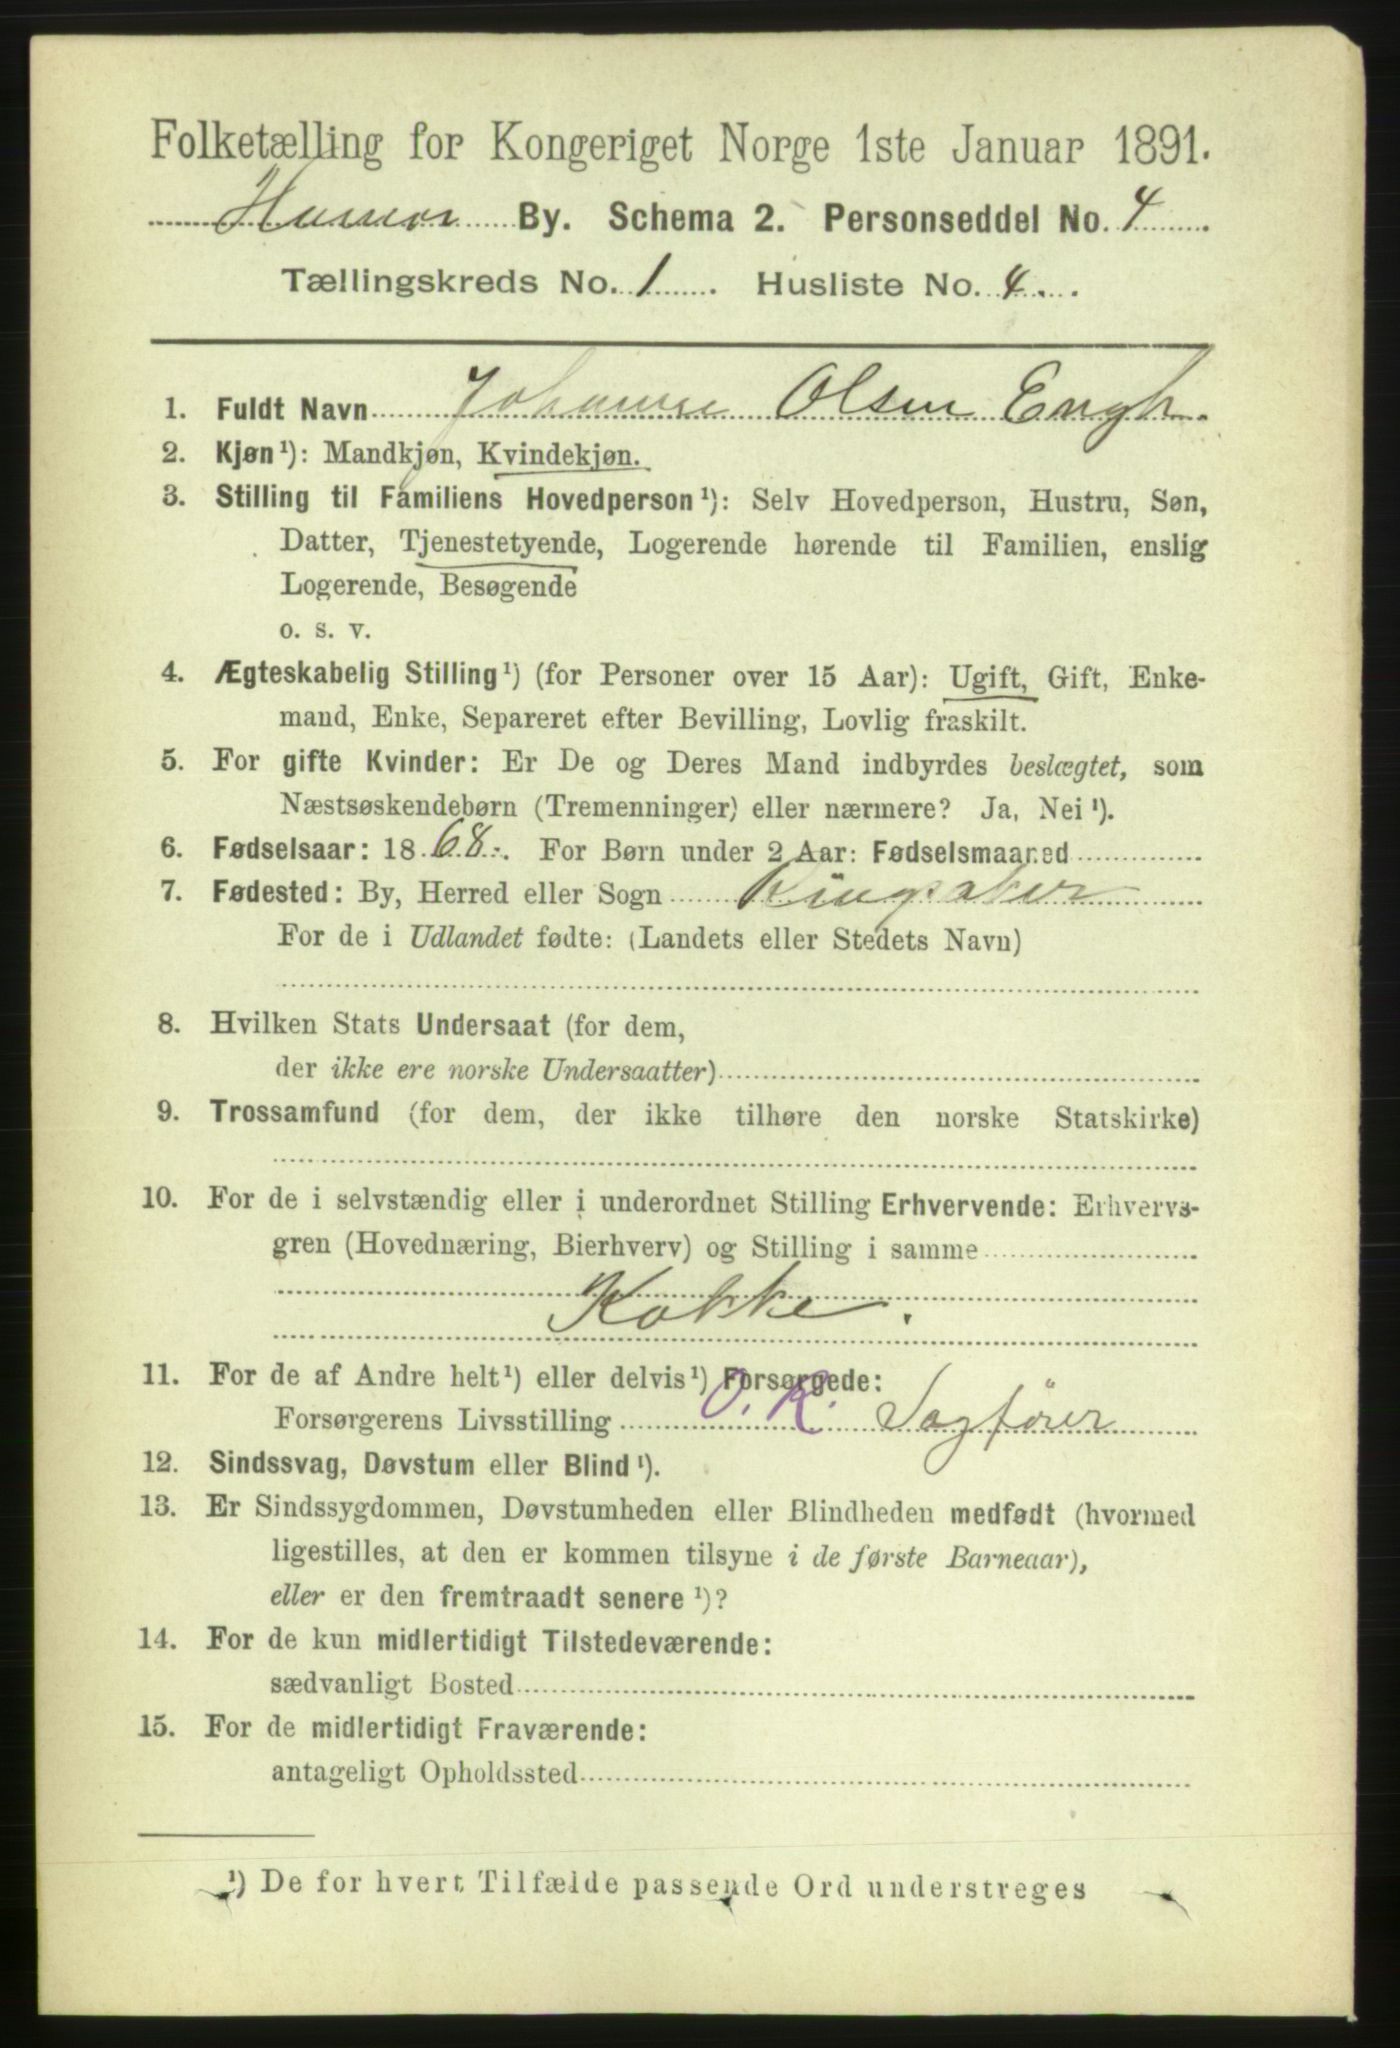 Folketælling for Kongeriget Norge 1ste Januar 1891.
Hamar By. Schema 2. Personseddel No. 4
Tællingskreds No. 1. Husliste No. 4.
1. Fuldt Navn Johanne Olsen Engh.
2. Kjøn ¹): Mandkjøn, Kvindekjøn.
3. Stilling til Familiens Hovedperson ¹): Selv Hovedperson, Hustru, Søn,
Datter, Tjenestetyende, Logerende hørende til Familien, enslig
Logerende, Besøgende
o. s. v.
4. Ægteskabelig Stilling ¹) (for Personer over 15 Aar): Ugift, Gift, Enke-
mand, Enke, Separeret efter Bevilling, Lovlig fraskilt.
5. For gifte Kvinder: Er De og Deres Mand indbyrdes beslægtet, som
Næstsøskendebørn (Tremenninger) eller nærmere? Ja, Nei ¹).
6. Fødselsaar: 18 68. For Børn under 2 Aar: Fødselsmaaned
7. Fødested: By, Herred eller Sogn Ringsaker
For de i Udlandet fødte: (Landets eller Stedets Navn)
8. Hvilken Stats Undersaat (for dem,
der ikke ere norske Undersaatter)
9. Trossamfund (for dem, der ikke tilhøre den norske Statskirke)
10. For de i selvstændig eller i underordnet Stilling Erhvervende: Erhvervs-
gren (Hovednæring, Bierhverv) og Stilling i samme
Kokke.
11. For de af Andre helt ¹) eller delvis ¹) Forsørgede:
Forsørgerens Livsstilling O. K. Sagfører
12. Sindssvag, Døvstum eller Blind ¹).
13. Er Sindssygdommen, Døvstumheden eller Blindheden medfødt (hvormed
ligestilles, at den er kommen tilsyne i de første Barneaar),
eller er den fremtraadt senere ¹)?
14. For de kun midlertidigt Tilstedeværende:
sædvanligt Bosted
15. For de midlertidigt Fraværende:
antageligt Opholdssted
¹) De for hvert Tilfælde passende Ord understreges